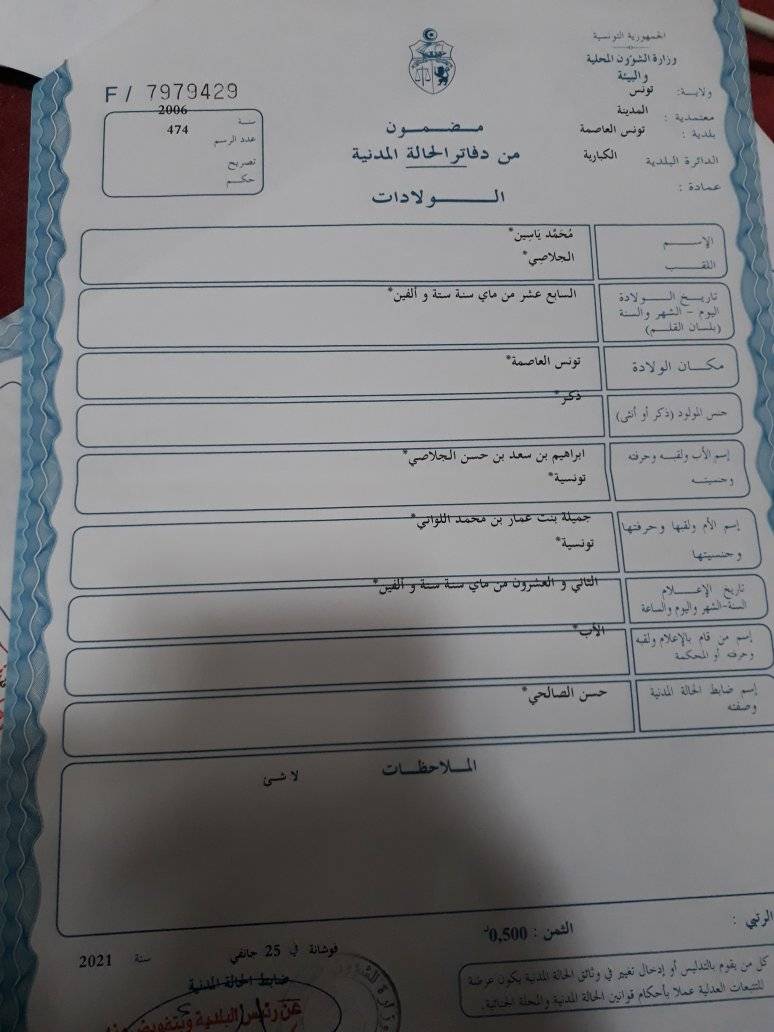 الجمهورية التونسية
وزارة الشؤون المحلية
والبيئة
ولاية: تونس
معتمدية : المدينة
بلدية : تونس العاصمة
الدائرة البلدية الكبارية
عمادة :
F/ 7979429
سنة 2006
عدد الرسم 474
تصريح
حكم
مضمون
من دفاتر الحالة المدنية
الولادات
الإسم مُحَمَّد يَاسِين*
اللقب الجلاصِي*
تاريخ الولادة السابع عشر من ماي سنة ستة و ألفين*
اليوم - الشهر والسنة
(بلسان القلم)
مكان الولادة تونس العاصمة*
جنس المولود (ذكر أو أنثى) ذكر*
إسم الأب ولقبه وحرفته ابراهيم بن سعد بن حسن الجلاصي*
وجنسيته تونسية*
إسم الأم ولقبها وحرفتها جميلة بنت عمار بن محمد اللواتي*
وجنسيتها تونسية*
تاريخ الإعلام الثاني و العشرون من ماي سنة ستة و ألفين*
السنة-الشهر واليوم والساعة
إسم من قام بالإعلام ولقبه الأب*
وحرفته أو المحكمة
إسم ضابط الحالة المدنية حسن الصالحي*
وصفته
الملاحظات
لا شئ
الرتبي :
الثمن : 0,500
فوشانة في 25 جانفي سنة 2021
ضابط الحالة المدنية
عن رئيس البلدية وبتفويض منه
كل من يقوم بالتدليس أو إدخال تغيير في وثائق الحالة المدنية يكون عرضة
للتتبعات العدلية عملا بأحكام قوانين الحالة المدنية والمجلة الجنائية.